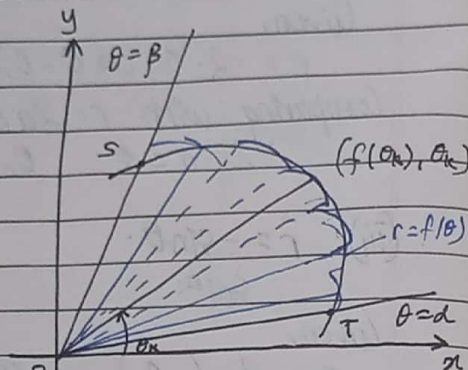 y
θ = β
S
(f(θₖ), θₖ)
r = f(θ)
θ = α
θₖ
T
x